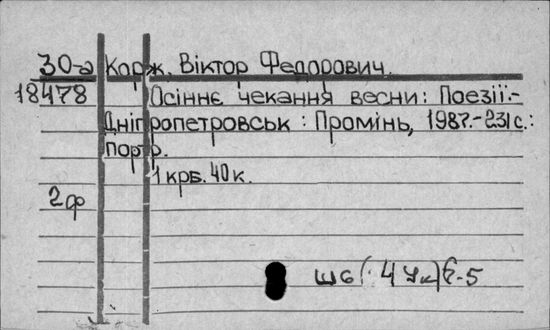 30-а Корж. Віктор Федорович.
18478 Осіннє чекання весни: Поезії.-
Дніпропетровськ: Промінь, 198?.-231с.:
портр.
1 крб. 40 к.
2ф
Ш6(4Ук) -5